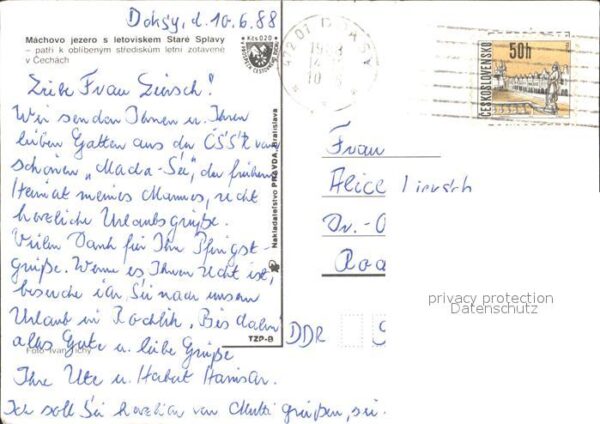 Doksy, d. 10.6.88
Máchovo jezero s letoviskem Staré Splavy
– patří k oblíbeným střediskům letní zotavené
v Čechách
Kčs 020
Liebe Frau Liersch!
Wir senden Ihnen u. Ihrem
lieben Gatten aus der ČSSR vom
schönen „Macha-See", der früheren
Heimat meines Mannes, recht
herzliche Urlaubsgrüße.
Vielen Dank für Ihre Pfingst-
grüße. Wenn es Ihnen recht ist,
besuche ich Sie nach unserem
Urlaub in Rochlitz. Bis dahin
alles Gute u. liebe Grüße
Ihre Ute u. Hubert
Ich soll Sie herzlich von Mutti grüßen,
Foto Ivan Tichý
Nakladatelství PRAVDA, Bratislava
TZP-B
472 01 DOKSY
ČESKOSLOVENSKO
50h
Frau
Alice Liersch
Dr.-
Roc
DDR
privacy protection
Datenschutz